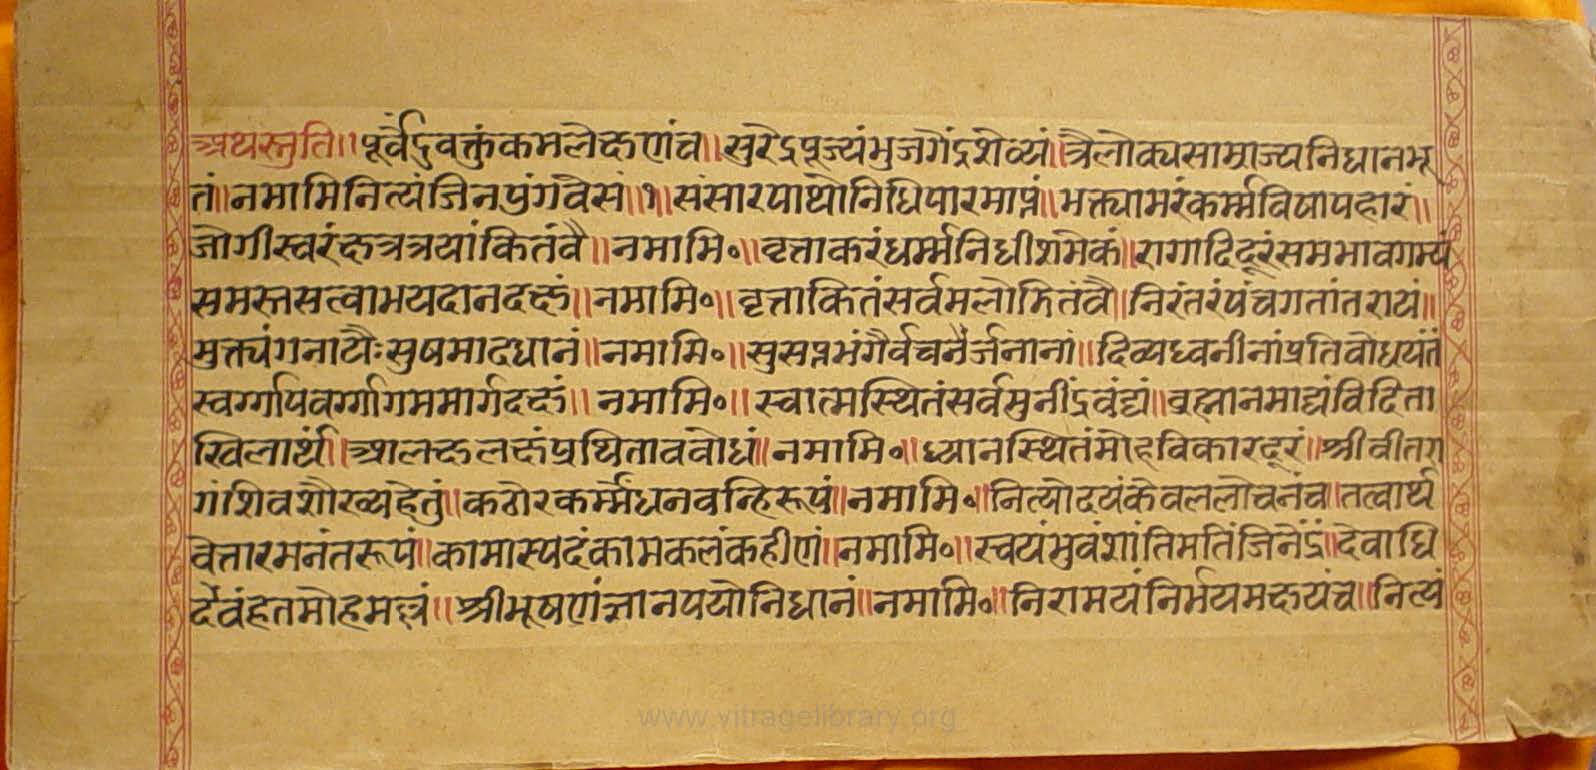 अथस्तुति॥पूर्वेंदुवक्तुंकमलेक्षणंच॥सुरेंद्रपूज्यंभुजगेंद्रशेव्यं॥त्रैलोक्यसाम्राज्यनिधानभू
तं॥नमामिनित्यंजिनपुंगवेसं॥१॥संसारपाथोनिधिपारमाप्नं॥भक्त्यामरंकर्म्मविषापहारं॥
जोगीस्वरंक्षत्रत्रयांकितंवै॥नमामि०॥वृत्ताकरंधर्म्मनिधीशमेकं॥रागादिदूरंसमभावगम्यं
समस्तसत्वाभयदानदक्षं॥नमामि०॥वृत्ताकितंसर्वमलोझितंवै॥निरंतरंपंचगतांतरायं॥
मुक्त्यंगनाटौःसुषमादधानं॥नमामि०॥सुसप्नभंगैर्वचनैर्जनानां॥दिव्यध्वनीनांप्रतिवोधयंतं
स्वर्ग्गापवर्ग्गागममार्गदक्षं॥नमामि०॥स्वात्मस्थितंसर्वमुनींद्रवंद्यं॥व्रह्मानमाद्यंविदिता
खिलार्थं॥आलक्षलक्षंप्रथिताववोधं॥नमामि०॥ध्यानस्थितंमोहविकारदूरं॥श्रीवीतरा
गंशिवशौख्यहेतुं॥कठोरकर्म्मेधनवन्हिरूपं॥नमामि०॥नित्योदयंकेवललोचनंच॥तत्वार्थ
वेत्तारमनंतरूपं॥कामास्पदंकामकलंकहीणं॥नमामि०॥स्वयंभुवंशांतिमतिंजिनेंद्रं॥देवाधि
देवंहतमोहमल्लं॥श्रीभूषणंज्ञानपयोनिधानं॥नमामि०॥निरामयंनिर्भयमक्षयंच॥नित्यं
www.vitragelibrary.org